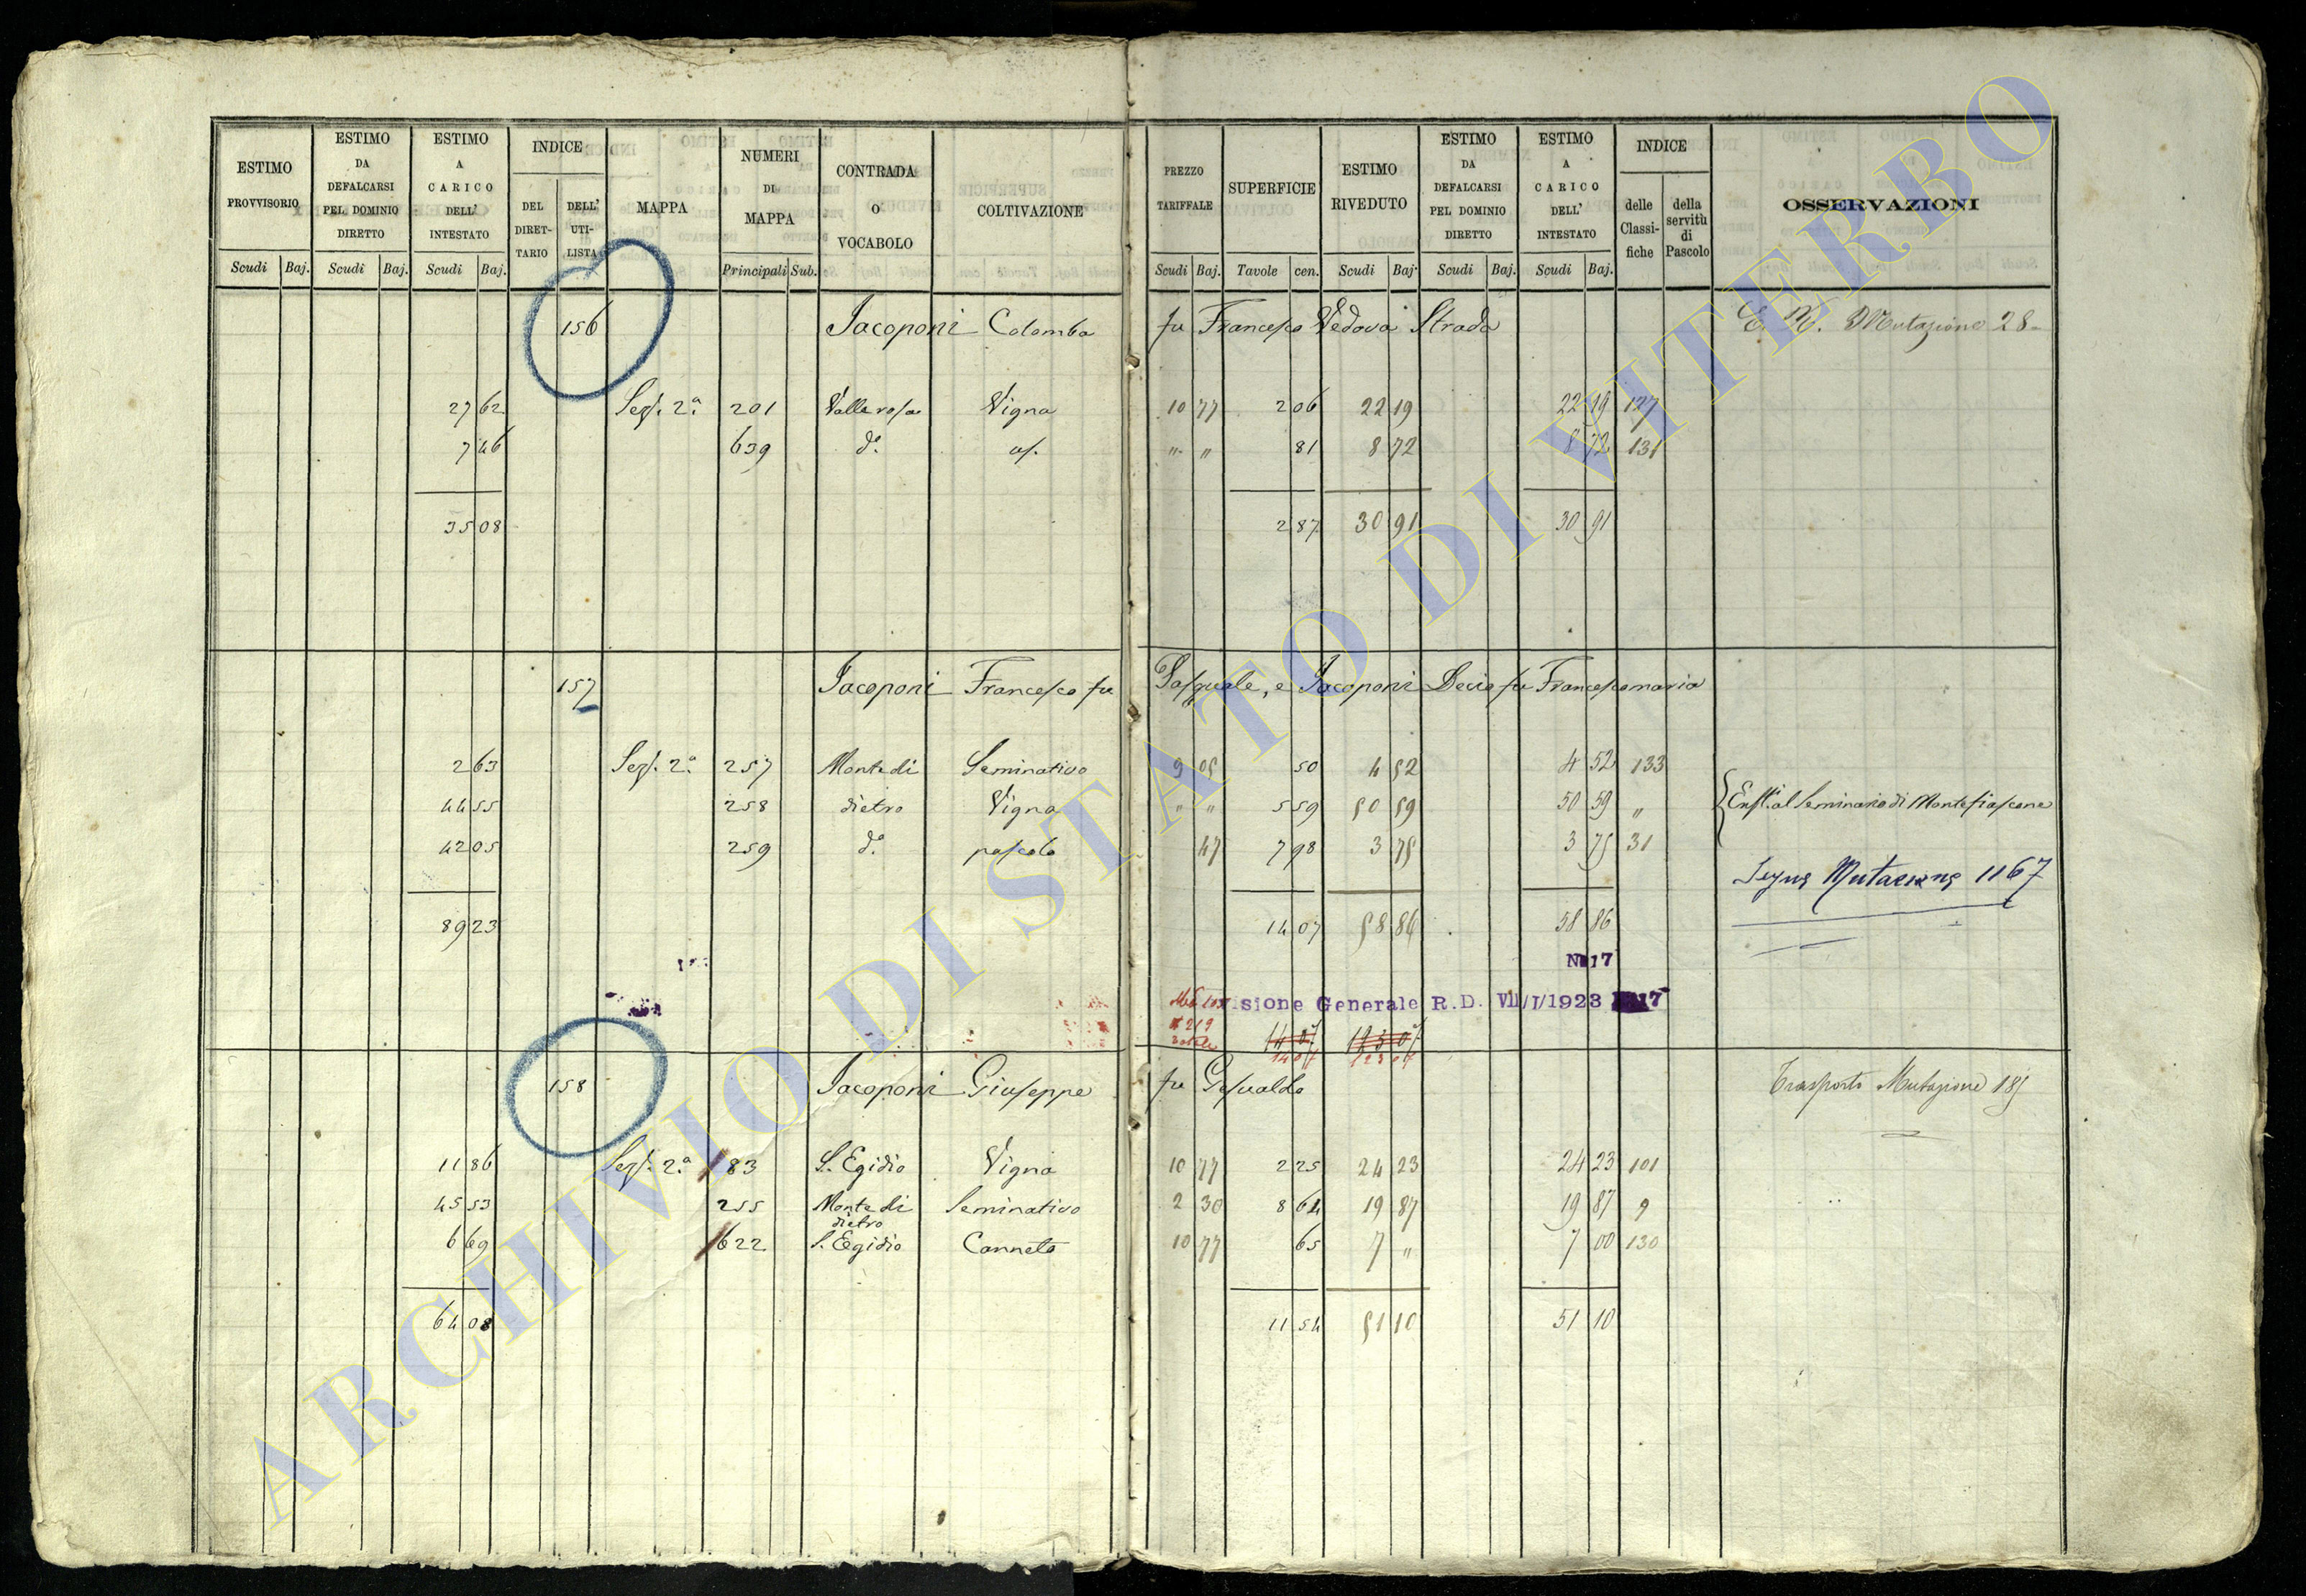 ESTIMO PROVVISORIO
ESTIMO DA DEFALCARSI PEL DOMINIO DIRETTO
ESTIMO A CARICO DELL' INTESTATO
INDICE
DEL DIRET-TARIO
DELL' UTI-LISTA
MAPPA
NUMERI DI MAPPA
CONTRADA O VOCABOLO
COLTIVAZIONE
PREZZO TARIFFALE
SUPERFICIE
ESTIMO RIVEDUTO
ESTIMO DA DEFALCARSI PEL DOMINIO DIRETTO
ESTIMO A CARICO DELL' INTESTATO
INDICE
delle Classi-fiche
della servitù di Pascolo
OSSERVAZIONI
Scudi Baj. Scudi Baj. Scudi Baj. Principali Sub. Scudi Baj. Tavole cen. Scudi Baj. Scudi Baj. Scudi Baj.
156 Jacoponi Colomba fu Francesco Vedova Strada Mutazione 28
27 62 Sez. 2.a 201 Valle rosa Vigna 10 77 2 06 22 19 22 19 127
7 46 639 d.o 81 8 72 8 72 131
35 08 2 87 30 91 30 91
157 Jacoponi Francesco fu Pasquale, e Jacoponi Decio fu Francescomaria
2 63 Sez. 2.a 257 Monte di Seminativo 9 05 50 4 52 4 52 133
44 55 258 dietro Vigna " " 5 59 50 59 50 59 " al Seminario di Montefiascone
42 05 259 d.o pascolo 47 7 98 3 75 3 75 31
Segue Mutazione 1167
89 23 14 07 58 86 58 86
N 17
isione Generale R.D. VII/I/1923 17
219
14 07 123 07
158 Jacoponi Giuseppe fu Gesualdo Trasporto Mutazione 185
11 86 Sez. 2.a 83 S. Egidio Vigna 10 77 2 25 24 23 24 23 101
45 53 255 Monte di dietro Seminativo 2 30 8 64 19 87 19 87 9
6 69 622 S. Egidio Canneto 10 77 65 7 " 7 00 130
64 08 11 54 51 10 51 10
ARCHIVIO DI STATO DI VITERBO